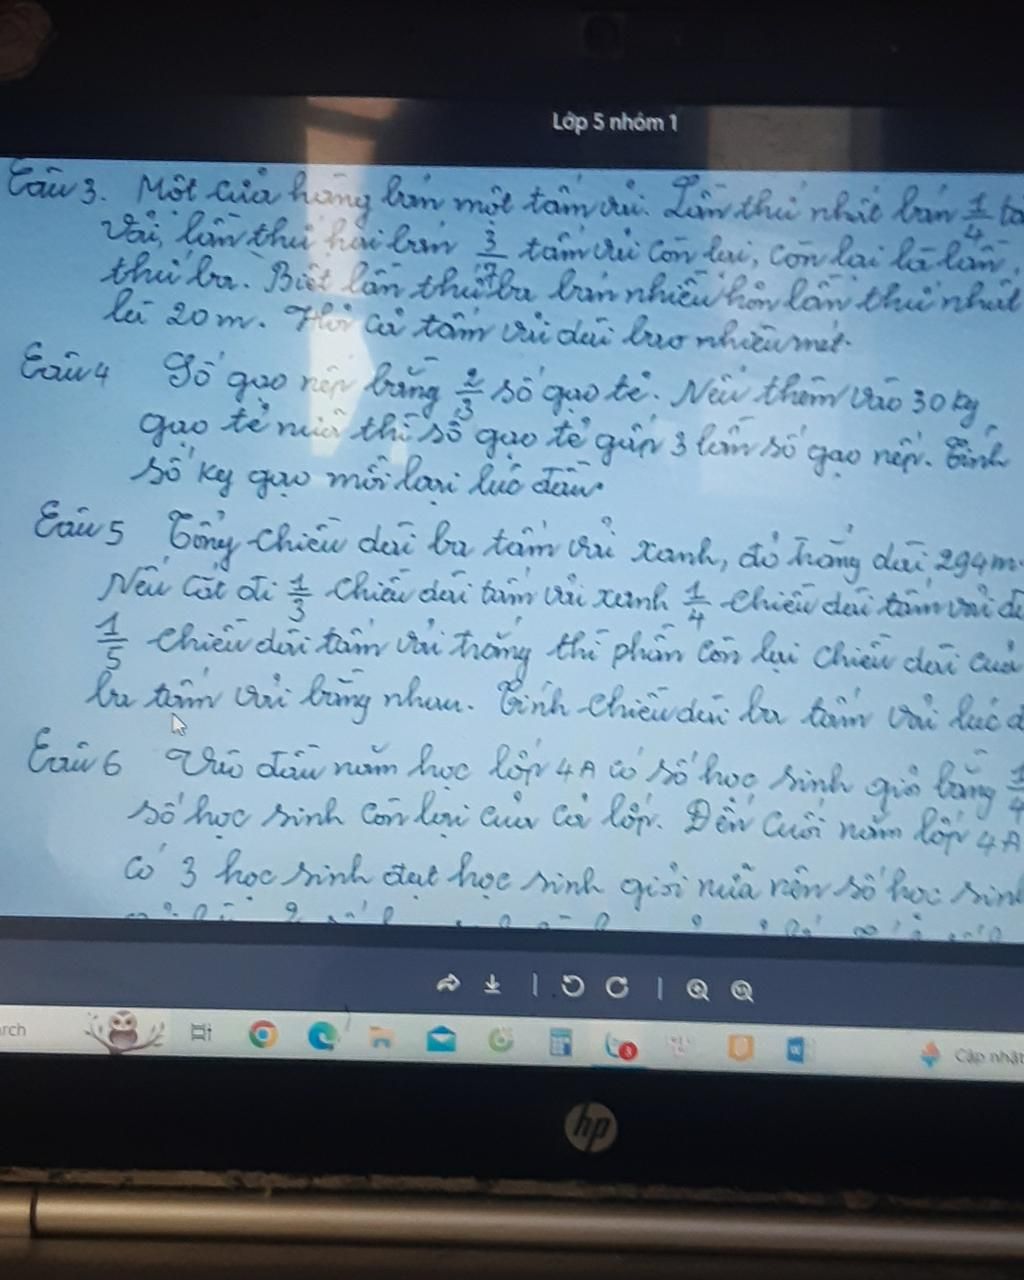 Lớp 5 nhóm 1
Câu 3. Một cửa hàng bán một tấm vải. Lần thứ nhất bán 1/4 tấ
vải, lần thứ hai bán 3/7 tấm vải còn lại, còn lại là lần
thứ ba. Biết lần thứ ba bán nhiều hơn lần thứ nhất
là 20m. Hỏi cả tấm vải dài bao nhiêu mét.
Câu 4 Số gạo nếp bằng 2/3 số gạo tẻ. Nếu thêm vào 30 kg
gạo tẻ nữa thì số gạo tẻ gấp 3 lần số gạo nếp. Tính
số kg gạo mỗi loại lúc đầu.
Câu 5 Tổng chiều dài ba tấm vải xanh, đỏ trắng dài 294m.
Nếu cắt đi 1/3 chiều dài tấm vải xanh 1/4 chiều dài tấm vải đ
1/5 chiều dài tấm vải trắng thì phần còn lại chiều dài của
ba tấm vải bằng nhau. Tính chiều dài ba tấm vải lúc đ
Câu 6 Vào đầu năm học lớp 4A có số học sinh giỏi bằng 1/4
số học sinh còn lại của cả lớp. Đến cuối năm lớp 4A
có 3 học sinh đạt học sinh giỏi nữa nên số học sinh
arch
3
Cập nhật
hp